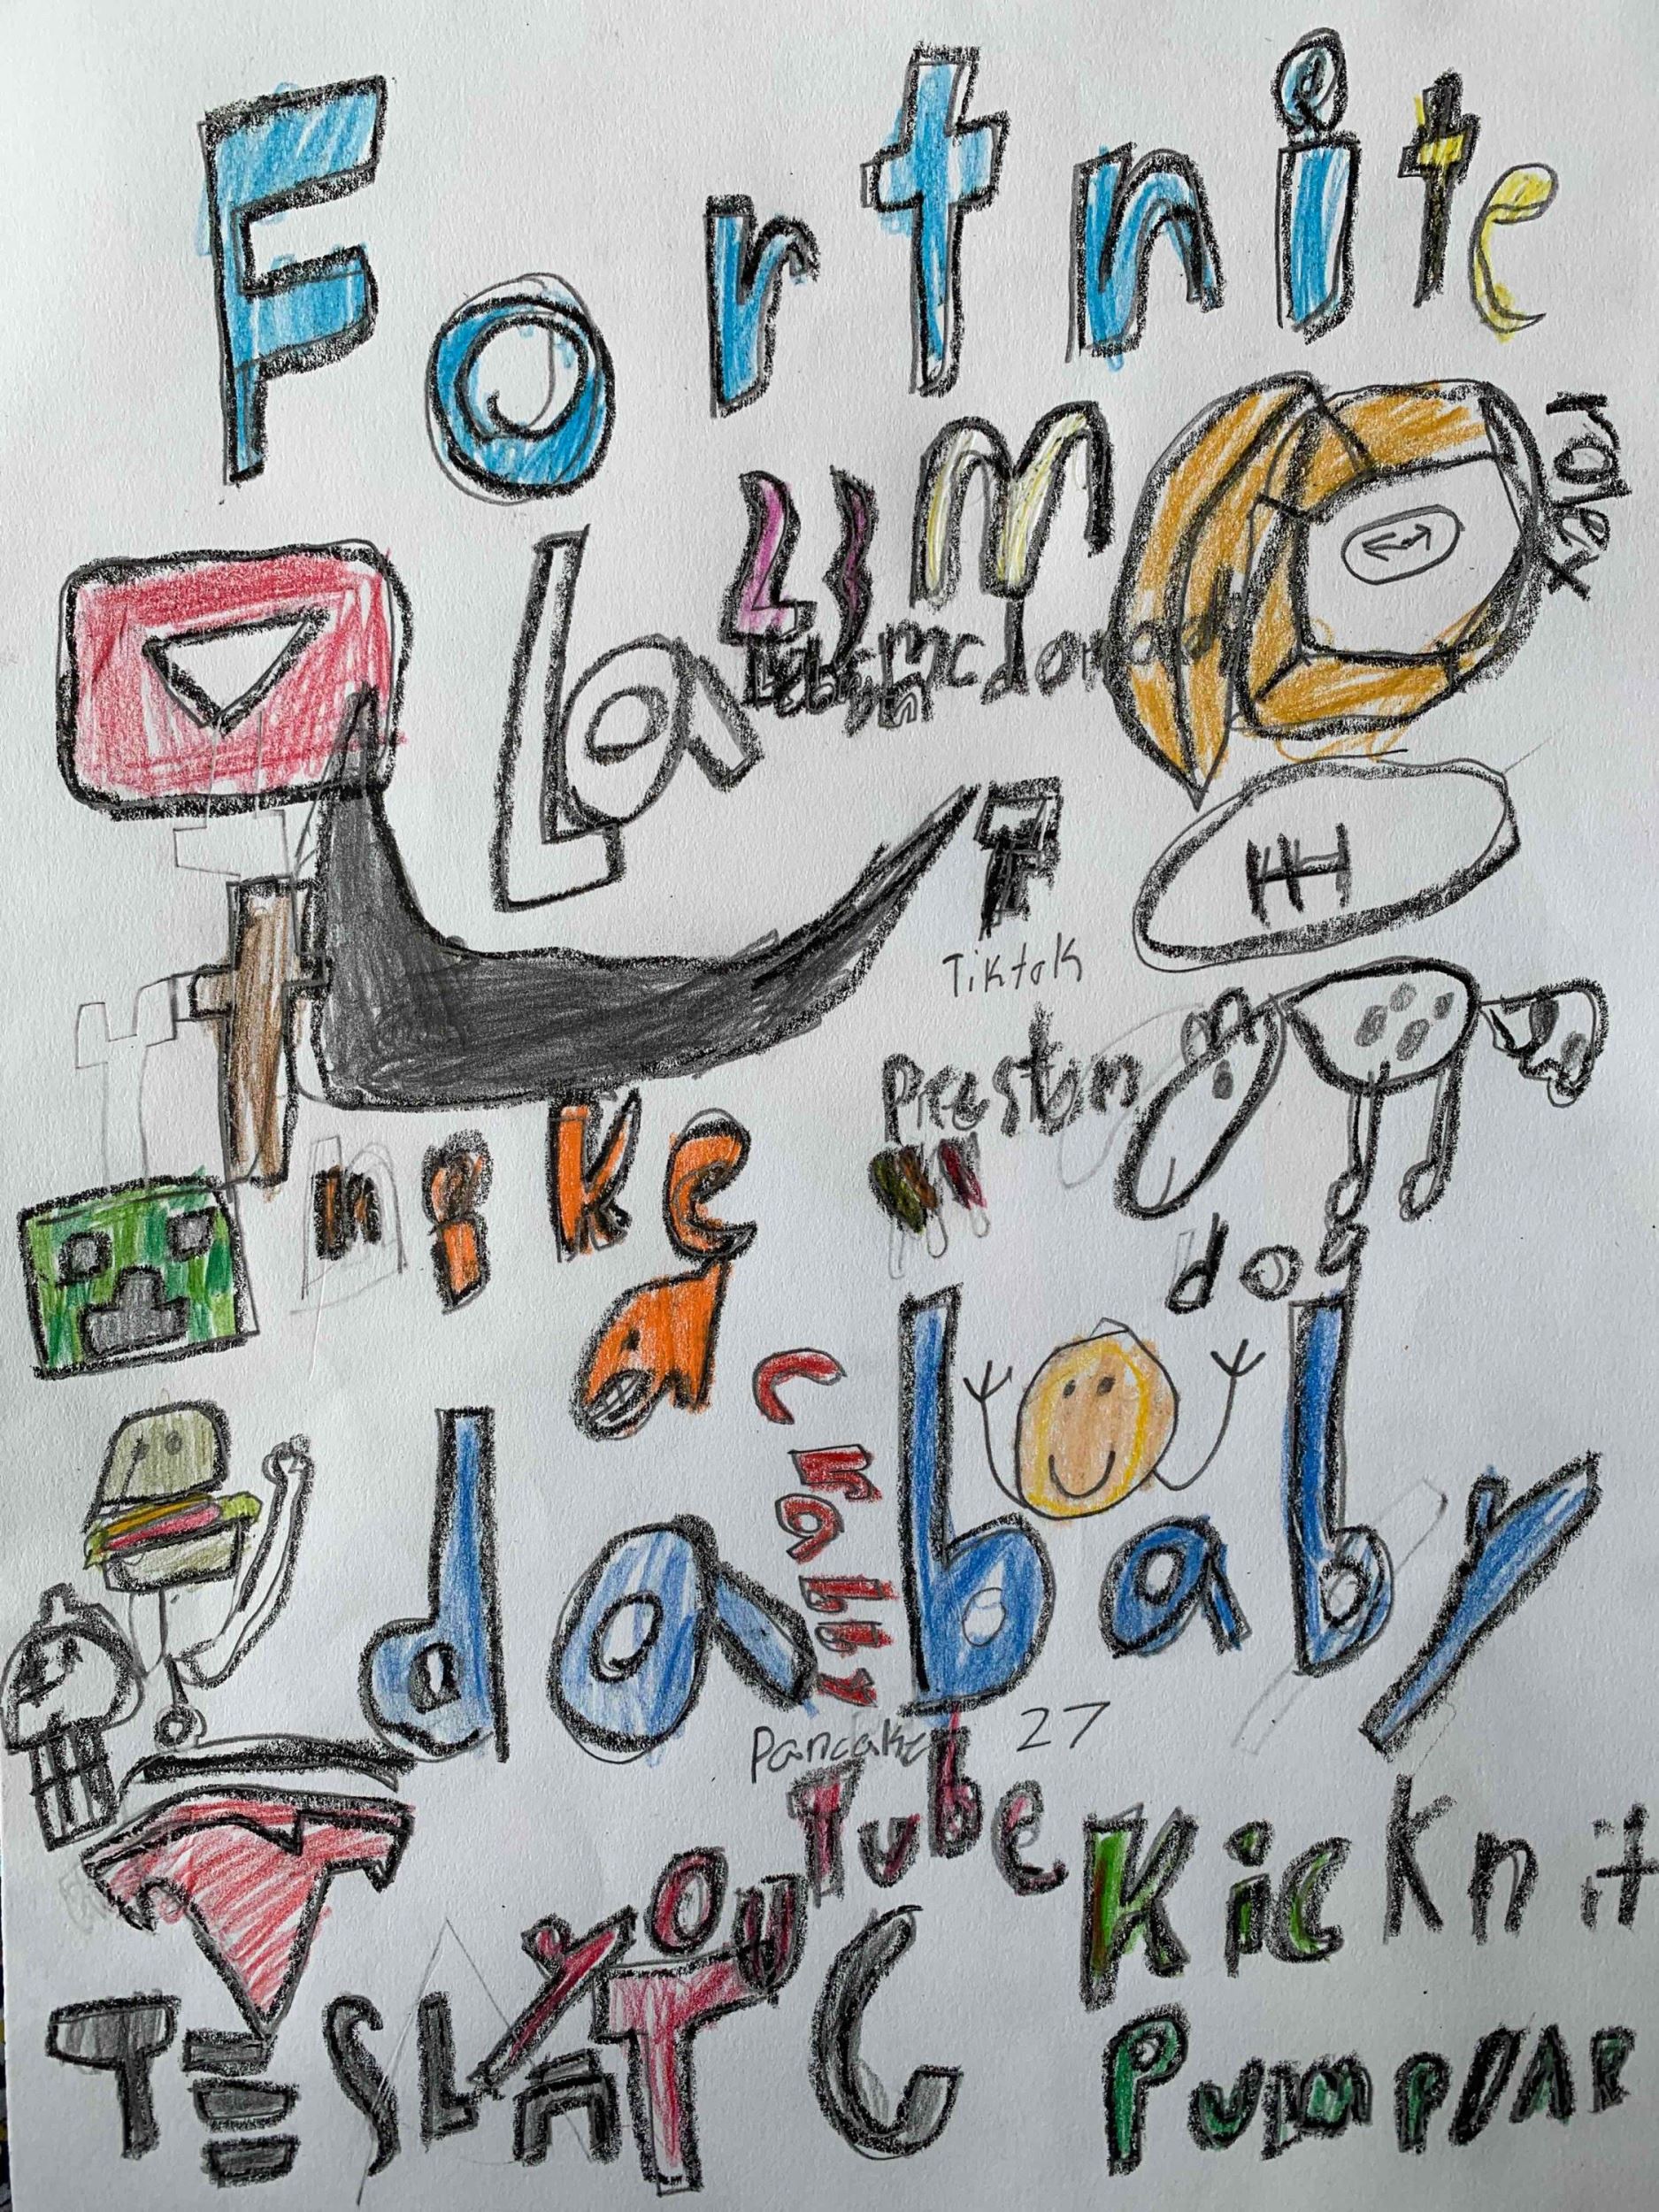 Fortnite
rolex
La
M
mcdonalds
Tiktok
Preston
nike
dog
Crabby
dababy
Pancake 27
YouTube
Kicknit
TESLA
T C
PUMPDAR